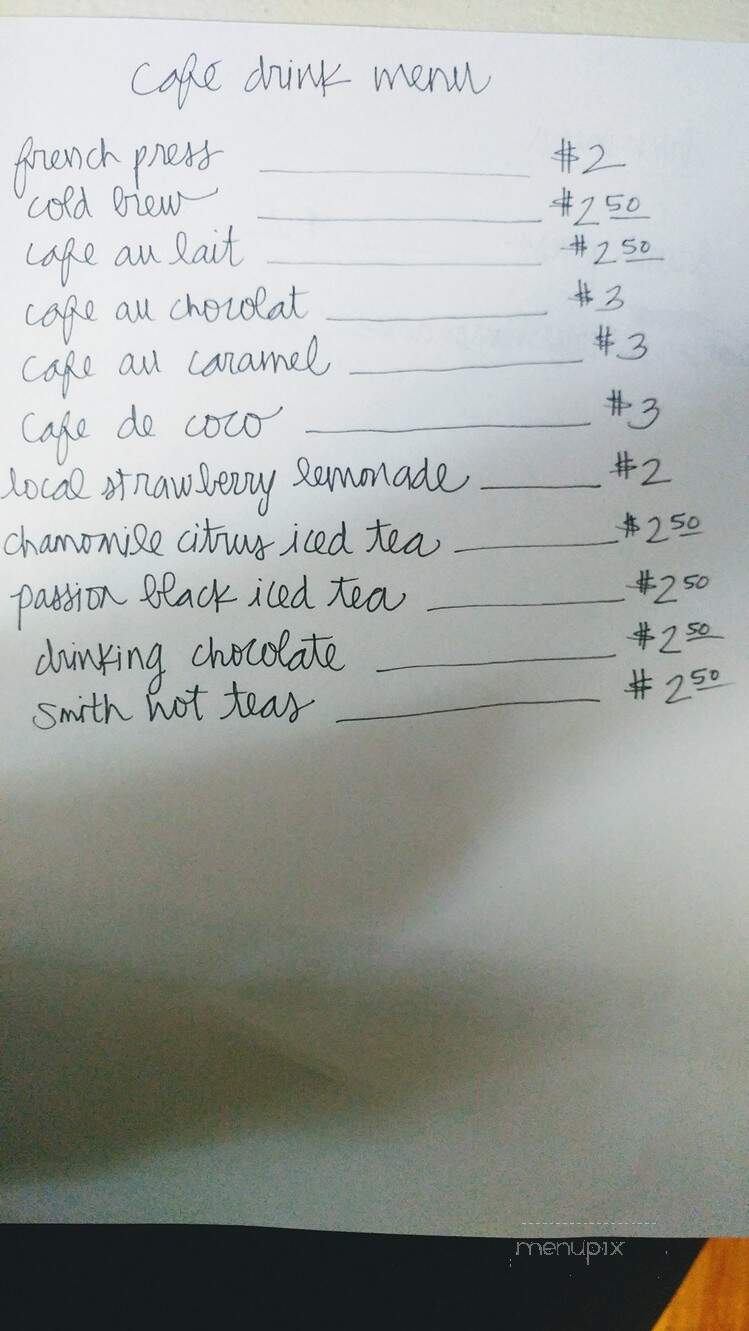 cafe drink menu
french press ________ $2
cold brew ________ $2 50
cafe au lait ________ $2 50
cafe au chocolat ________ $3
cafe au caramel ________ $3
cafe de coco ________ $3
local strawberry lemonade ________ $2
chamomile citrus iced tea ________ $2 50
passion black iced tea ________ $2 50
drinking chocolate ________ $2 50
smith hot teas ________ $2 50
menupix